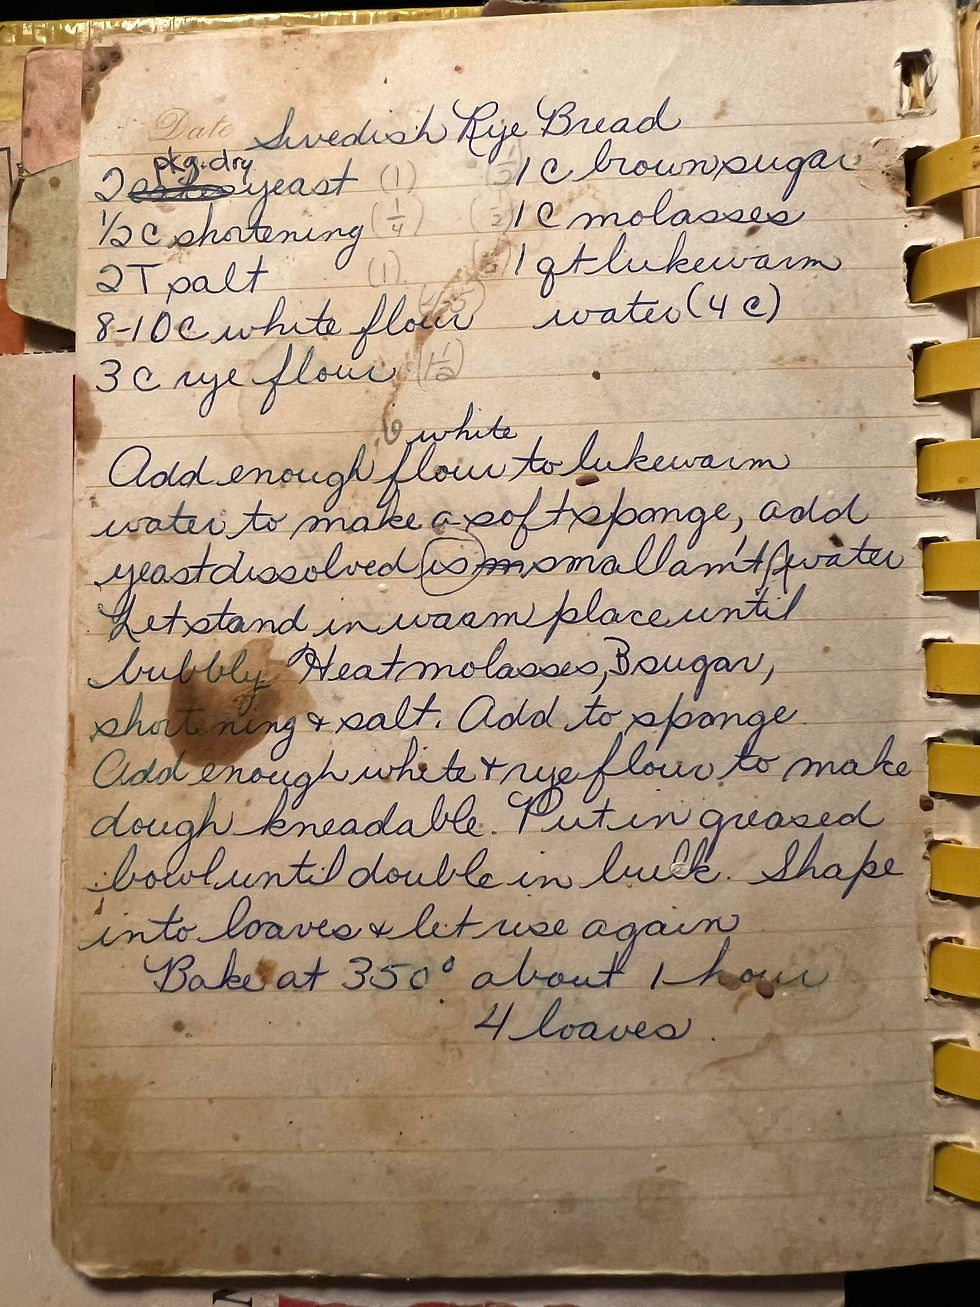 Date Swedish Rye Bread
pkg. dry
2 yeast (1) (1/2) 1 C brown sugar
1/2 C shortening (1/4) (1/2) 1 C molasses
2 T salt (1) 1 qt lukewarm
8-10 C white flour water (4 C)
3 C rye flour (1 1/2)
white
Add enough flour to lukewarm
water to make a soft sponge, add
yeast dissolved is small am't water
Let stand in warm place until
bubbly. Heat molasses, B sugar,
shortening & salt. Add to sponge
Add enough white & rye flour to make
dough kneadable. Put in greased
bowl until double in bulk. Shape
into loaves & let rise again
Bake at 350° about 1 hour
4 loaves